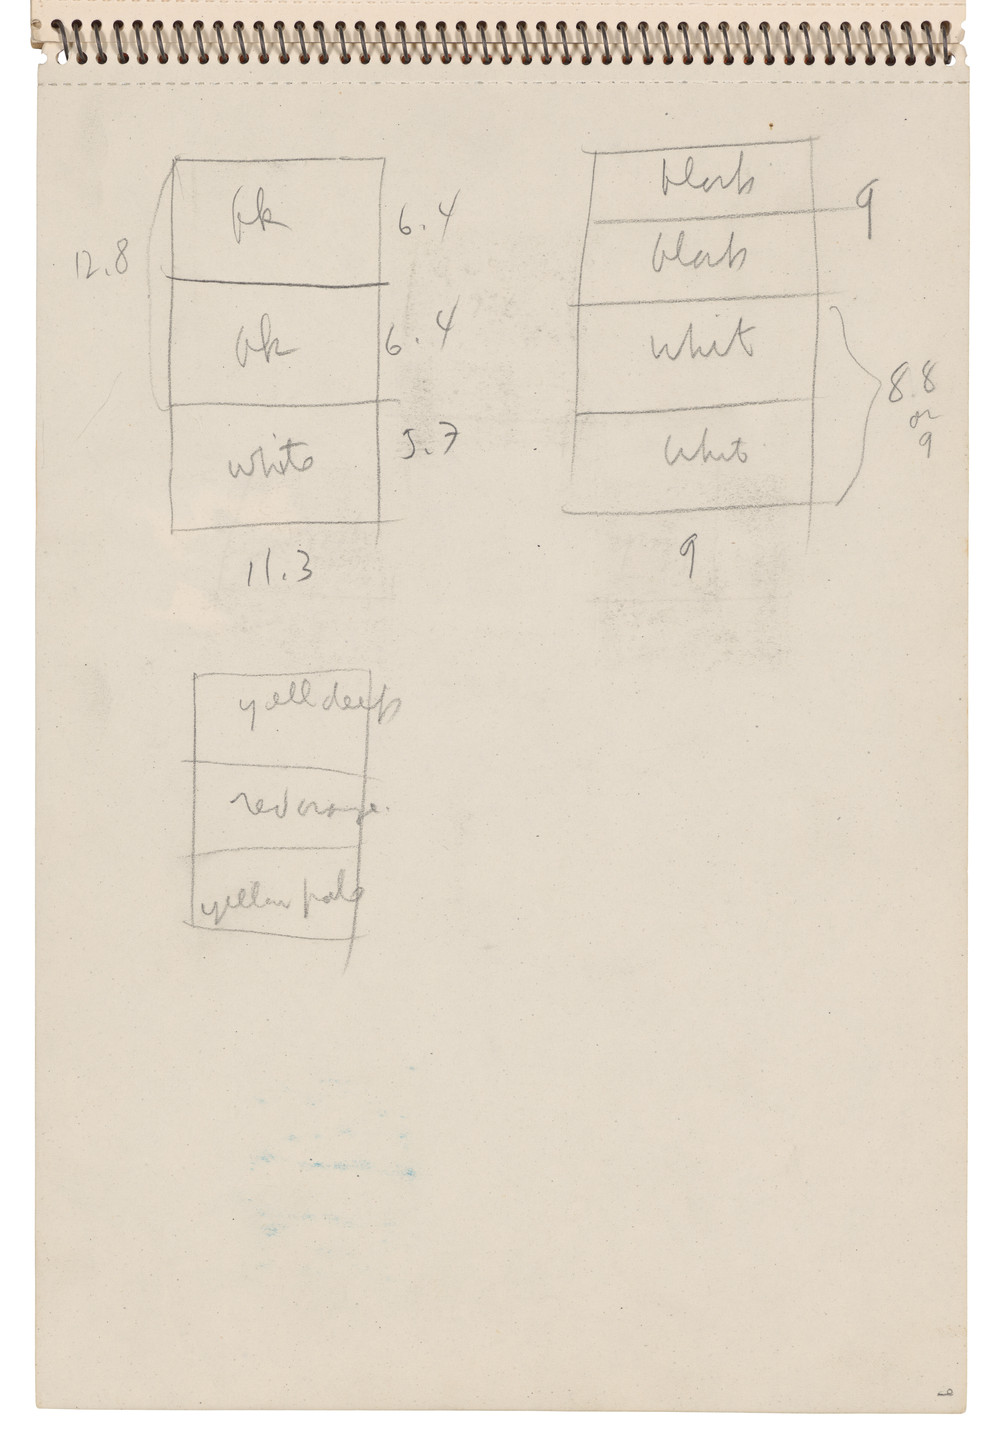 bk
6.4
12.8
bk
6.4
white
5.7
11.3
black
9
black
whit
whit
8.8
or
9
9
yell deep
red orange.
yellow pale